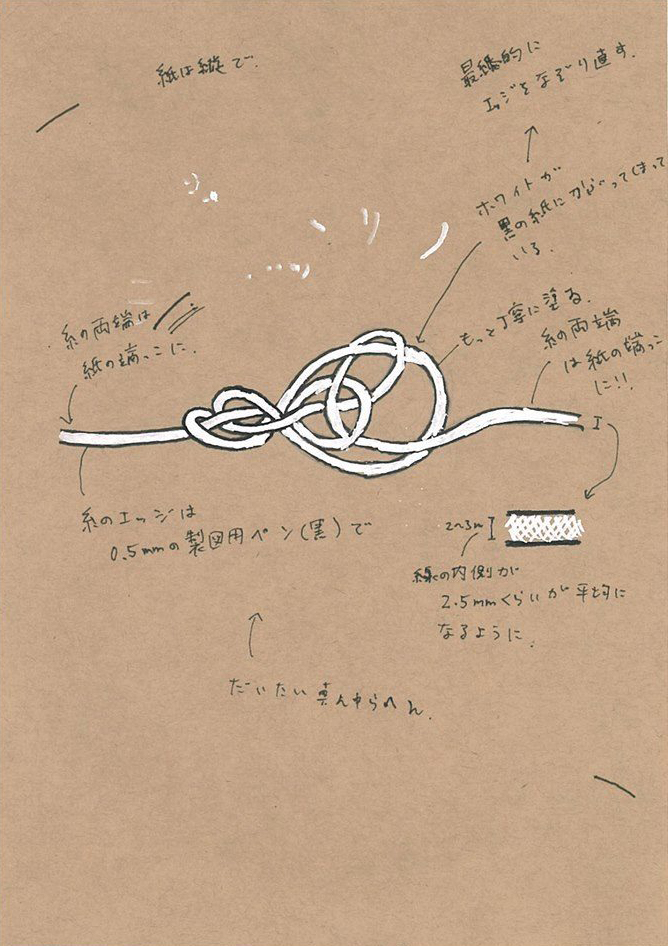 紙は縦で.
最終的に
エッジをなぞり直す.
ホワイトが
黒の紙にかぶってしまって
いる.
もっと丁寧に塗る.
糸の両端は
紙の端っこに.
糸の両端
は紙の端っこ
に!!
糸のエッジは
0.5mmの製図用ペン(黒)で
2~3m
線の内側が
2.5mmくらいが平均に
なるように.
だいたい真ん中らへん.